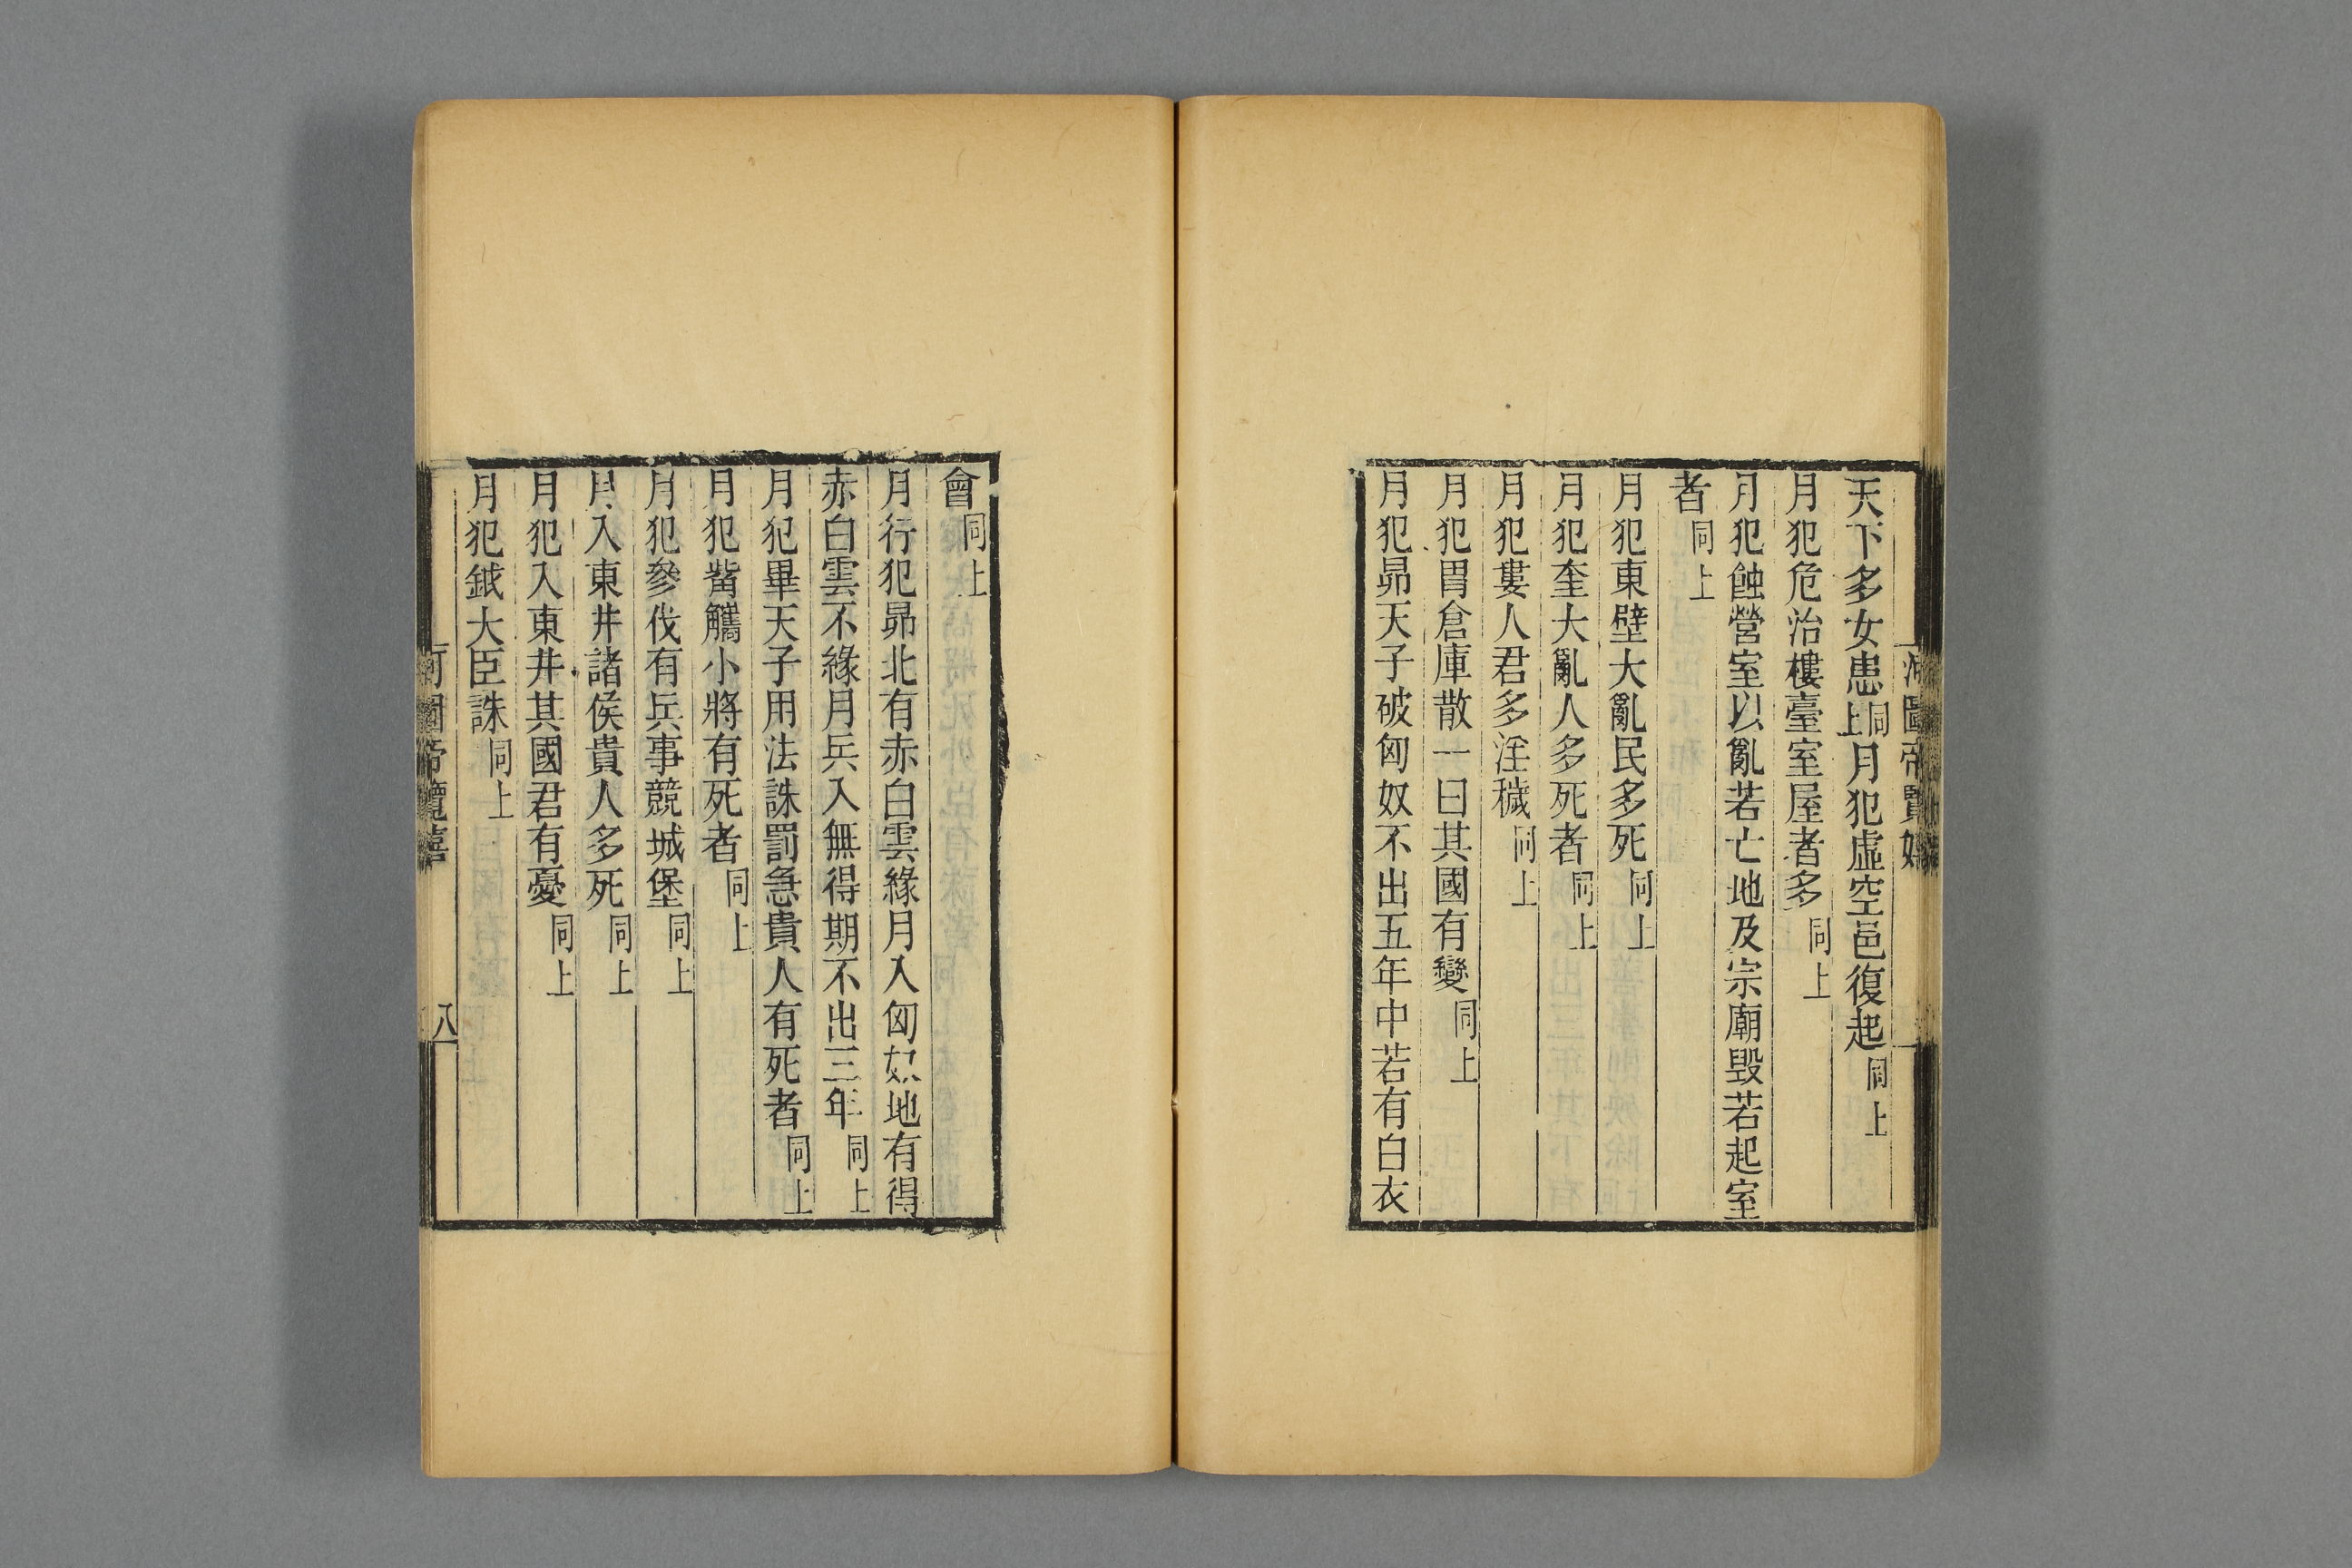 天下多女患同上月犯虛空邑復起同上
月犯危治樓臺室屋者多同上
月犯蝕營室以亂若亡地及宗廟毀若起室
者同上
月犯東壁大亂民多死同上
月犯奎大亂人多死者同上
月犯婁人君多淫穢同上
月犯胃倉庫散一曰其國有變同上
月犯昴天子破匈奴不出五年中若有白衣
會同上
月行犯昴北有赤白雲緣月入匈奴地有得
赤白雲不緣月兵入無得期不出三年同上
月犯畢天子用法誅罰急貴人有死者同上
月犯觜觿小將有死者同上
月犯參伐有兵事競城堡同上
月入東井諸侯貴人多死同上
月犯入東井其國君有憂同上
月犯鉞大臣誅同上
河圖帝覽嬉
八